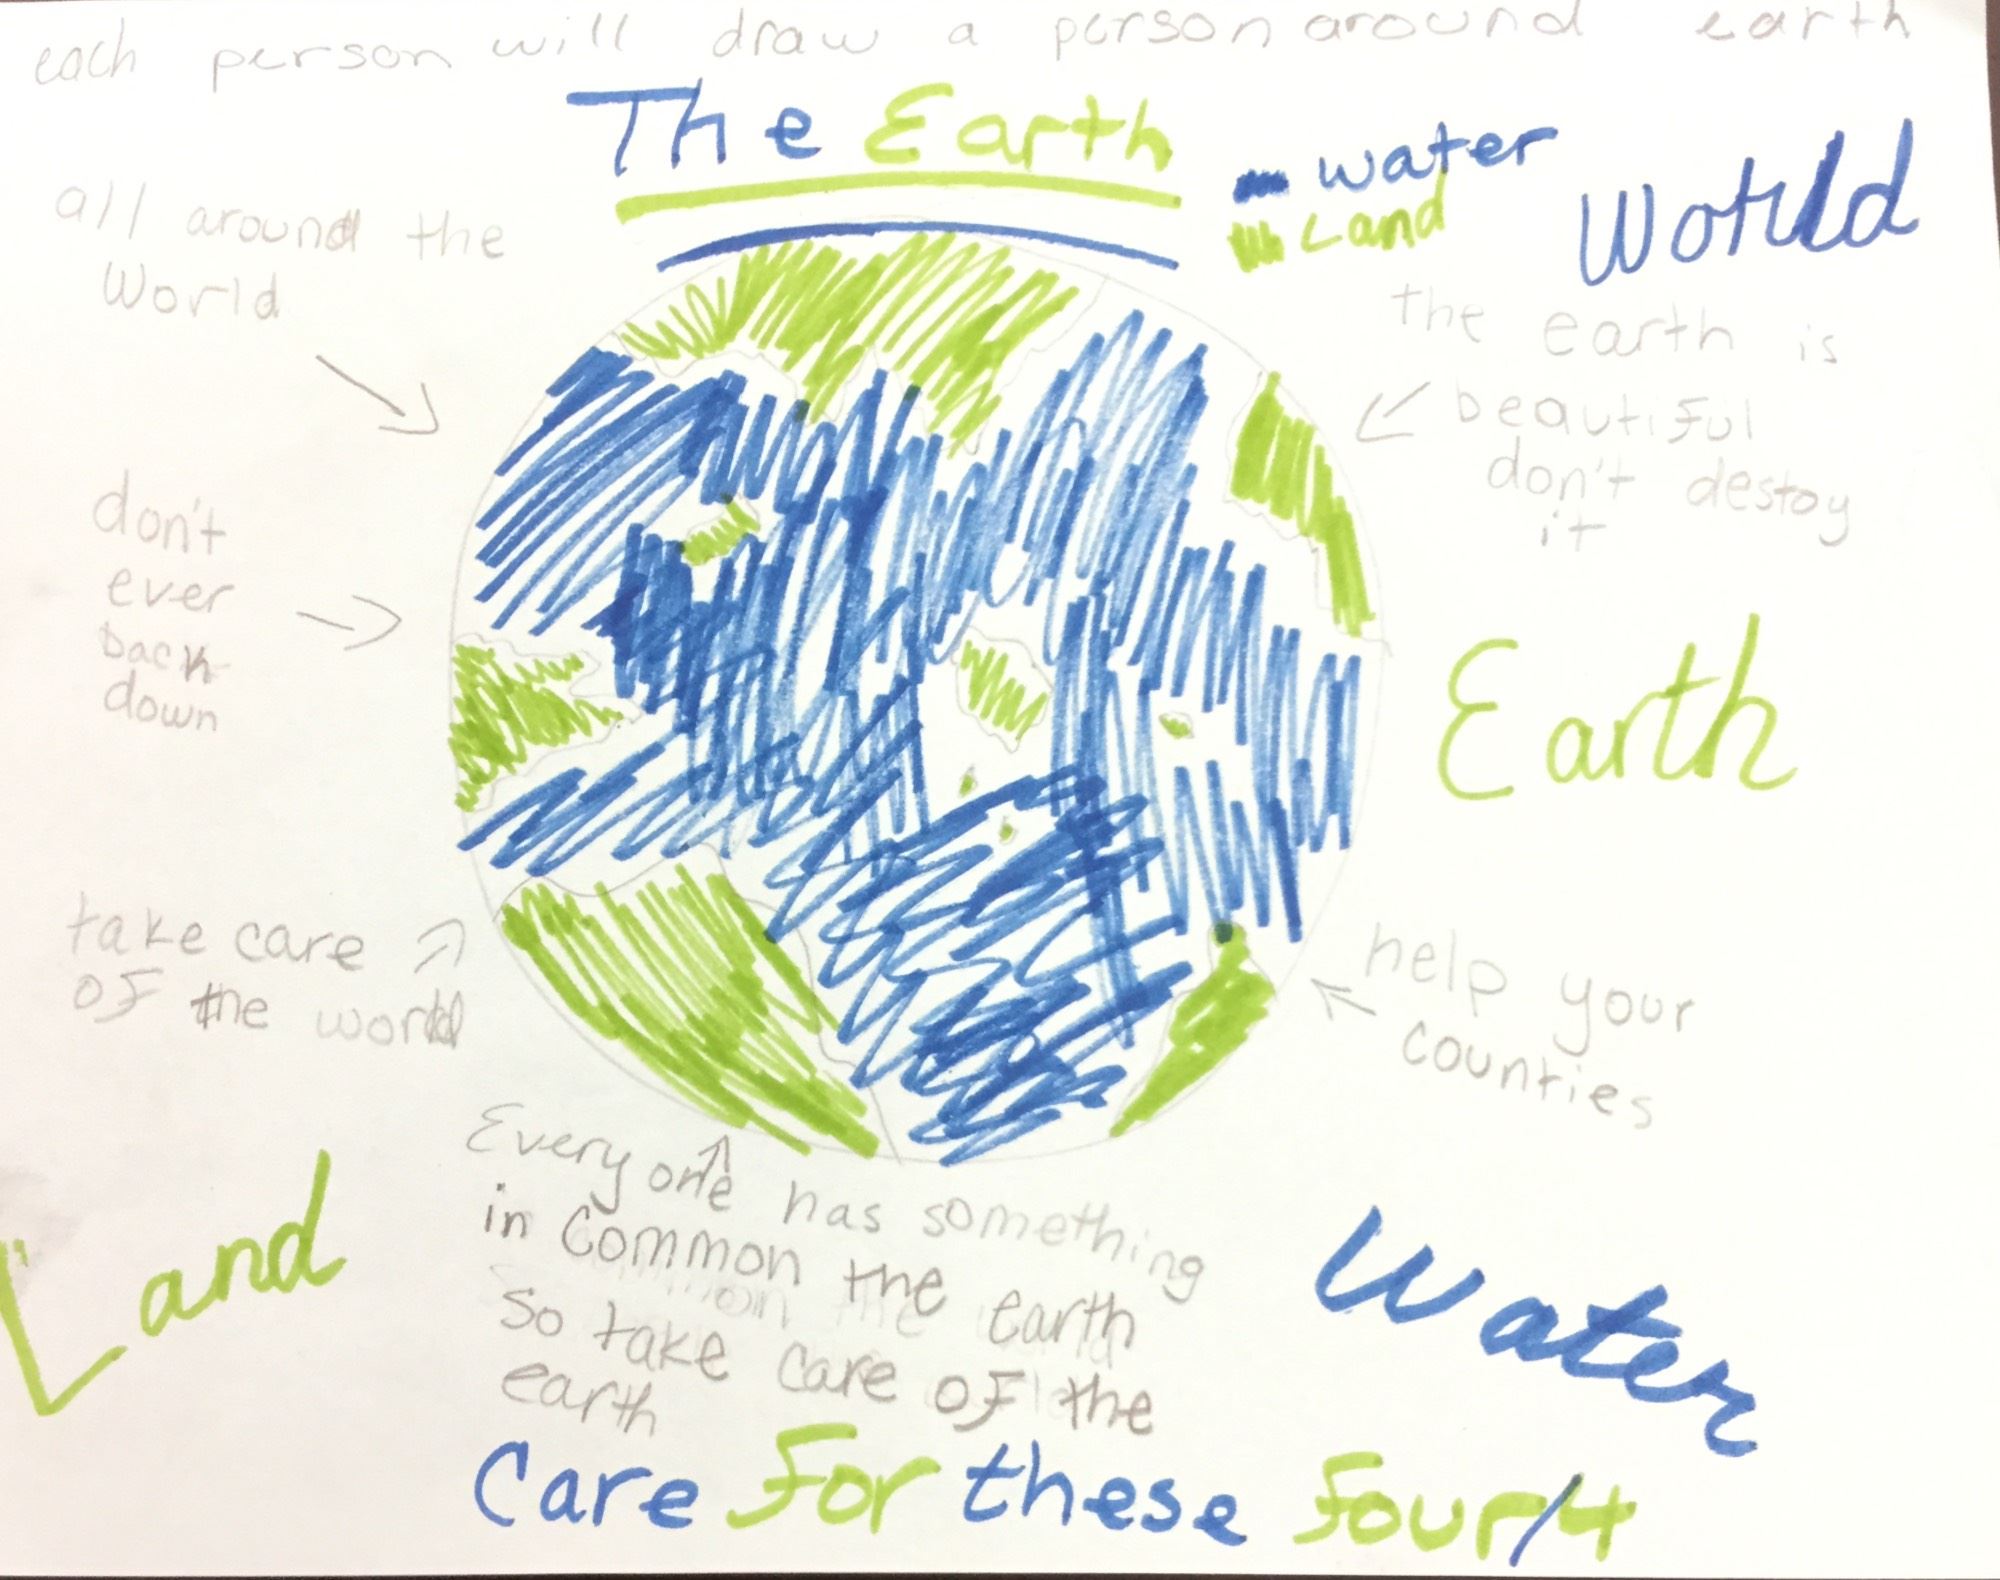 each person will draw a person around earth
The Earth
water
Land
World
all around the
World
the earth is
beautiful
don't destoy
it
don't
ever
back
down
Earth
take care
of the world
help your
counties
Every one has something
in common the earth
so take care of the
earth
Land
Water
Care for these four/4